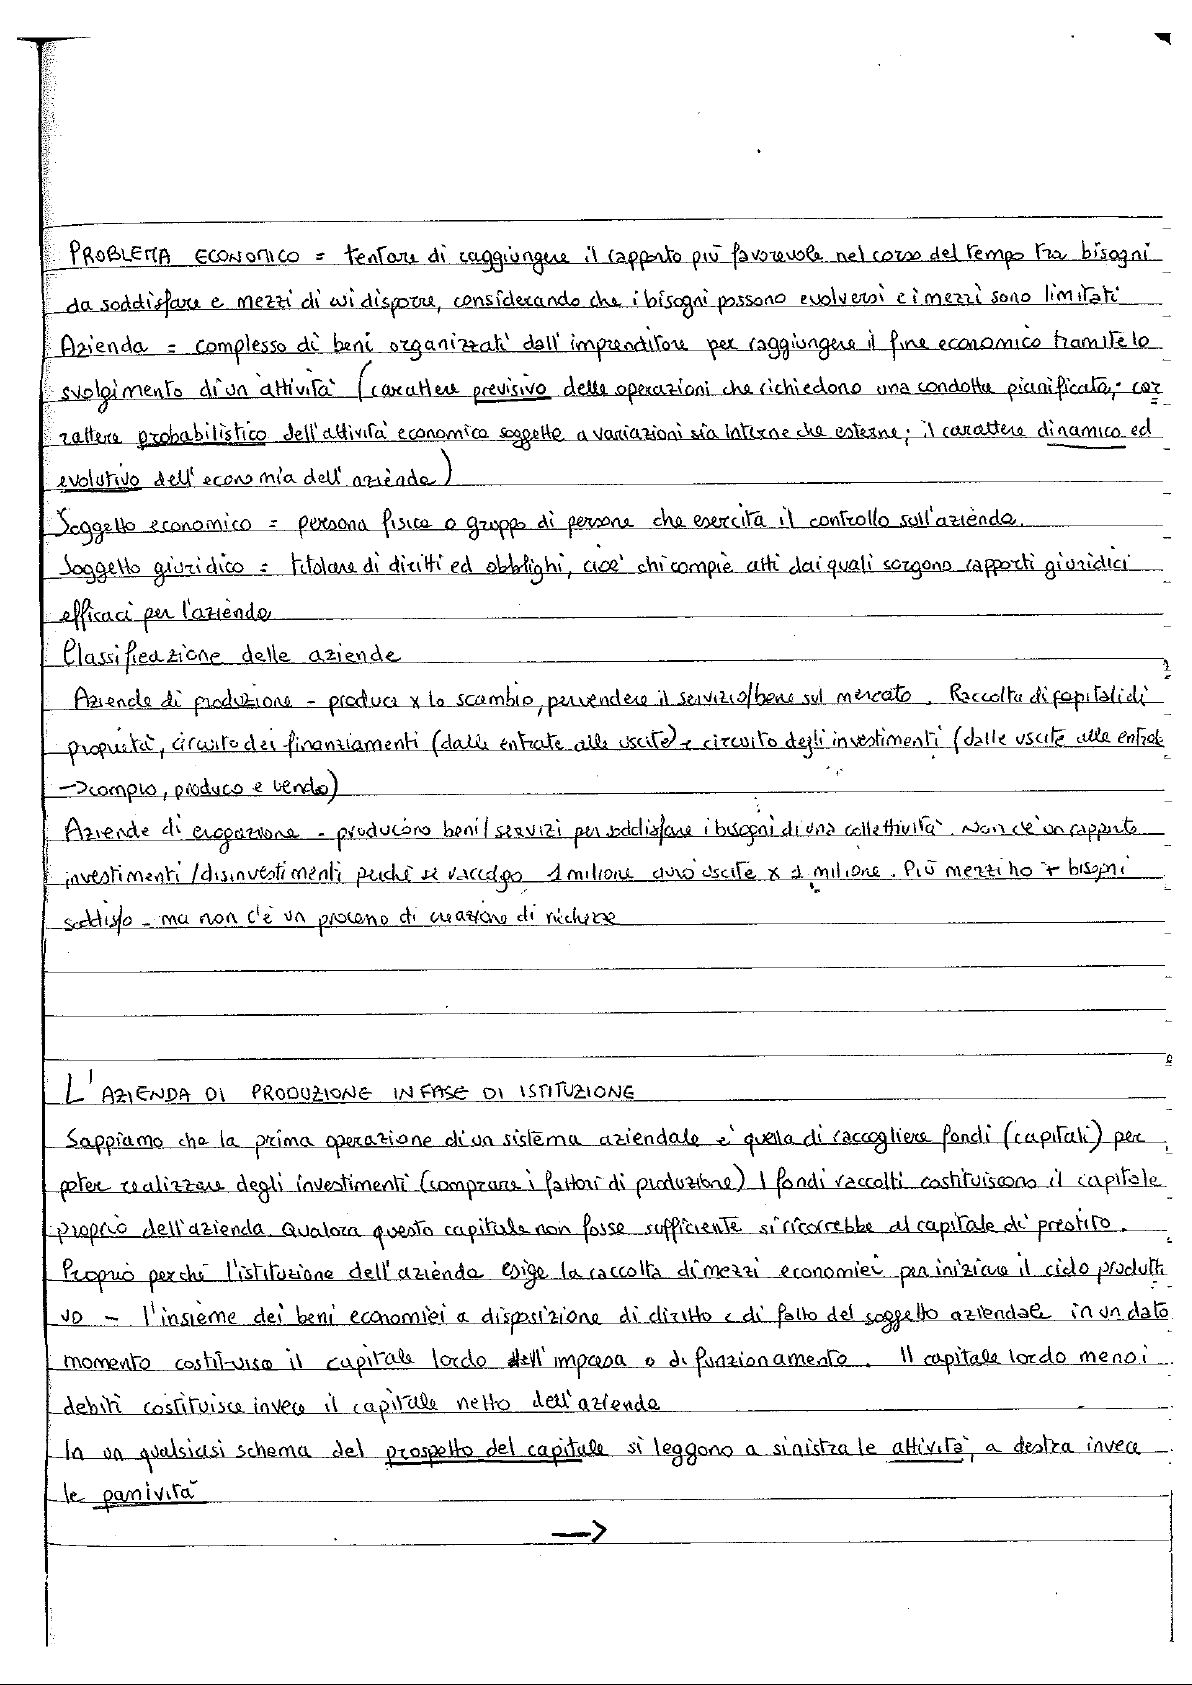 PROBLEMA ECONOMICO = tentare di raggiungere il rapporto più favorevole nel corso del tempo tra bisogni
da soddisfare e mezzi di cui disporre, considerando che i bisogni possono evolversi e i mezzi sono limitati
Azienda = complesso di beni organizzati dall'imprenditore per raggiungere il fine economico tramite lo
svolgimento di un'attività (carattere previsivo delle operazioni che richiedono una condotta pianificata; car=
rattere probabilistico dell'attività economica soggette a variazioni sia interne che esterne; il carattere dinamico ed
evolutivo dell'economia dell'azienda)
Soggetto economico = persona fisica o gruppo di persone che esercita il controllo sull'azienda.
Soggetto giuridico = titolare di diritti ed obblighi, cioè chi compie atti dai quali sorgono rapporti giuridici
efficaci per l'azienda
Classificazione delle aziende
Aziende di produzione - produce x lo scambio, per vendere il servizio/bene sul mercato. Raccolta di capitali di
proprietà, circuito dei finanziamenti (dalle entrate alle uscite) e circuito degli investimenti (dalle uscite alle entrate
→ compro, produco e vendo)
Aziende di erogazione - producono beni/servizi per soddisfare i bisogni di una collettività. Non c'è un rapporto
investimenti/disinvestimenti perché se raccolgo 1 milione avrò uscite x 1 milione. Più mezzi ho + bisogni
soddisfo - ma non c'è un processo di creazione di ricchezza
L'AZIENDA DI PRODUZIONE IN FASE DI ISTITUZIONE
Sappiamo che la prima operazione di un sistema aziendale è quella di raccogliere fondi (capitali) per
poter realizzare degli investimenti (comprare i fattori di produzione) I fondi raccolti costituiscono il capitale
proprio dell'azienda. Qualora questo capitale non fosse sufficiente si ricorrebbe al capitale di prestito.
Proprio perché l'istituzione dell'azienda esige la raccolta di mezzi economici per iniziare il ciclo produtti
vo - l'insieme dei beni economici a disposizione di diritto e di fatto del soggetto aziendale in un dato
momento costituisce il capitale lordo dell'impresa o di funzionamento. Il capitale lordo meno i
debiti costituisce invece il capitale netto dell'azienda
In un qualsiasi schema del prospetto del capitale si leggono a sinistra le attività, a destra invece
le passività
→